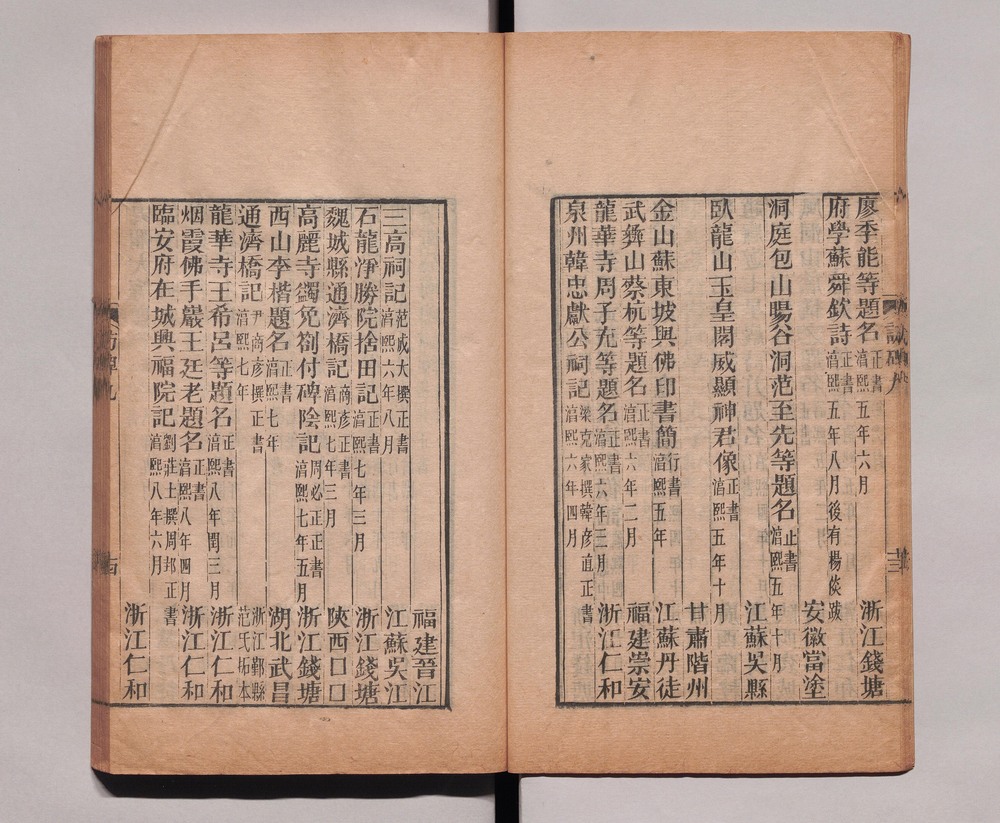 廖季能等題名 正書 湻熙五年六月
浙江錢塘
府學蘇舜欽詩 正書 湻熙五年八月後有楊倓跋
安徽當塗
洞庭包山暘谷洞范至先等題名 正書 湻熙五年十月
江蘇吳縣
臥龍山玉皇閣威顯神君像 正書 湻熙五年十月
甘肅階州
金山蘇東坡與佛印書簡 行書 湻熙五年
江蘇丹徒
武彝山蔡杭等題名 正書 湻熙六年二月
福建崇安
龍華寺周子充等題名 正書 湻熙六年三月
浙江仁和
泉州韓忠獻公祠記 梁克家撰韓彥直正書 湻熙六年四月
福建晉江
三高祠記 范成大撰正書 湻熙六年八月
江蘇吳江
石龍淨勝院捨田記 正書 湻熙七年三月
浙江錢塘
魏城縣通濟橋記 商彥正書 湻熙七年三月
陝西口口
高麗寺蠲免劄付碑陰記 周必正正書 湻熙七年五月
浙江錢塘
西山李楷題名 正書 湻熙七年
湖北武昌
通濟橋記 尹商彥撰正書 湻熙七年
浙江鄞縣范氏拓本
龍華寺王希呂等題名 正書 湻熙八年閏三月
浙江仁和
烟霞佛手巖王廷老題名 正書 湻熙八年四月
浙江仁和
臨安府在城興福院記 劉莊士撰周邦正書 湻熙八年六月
浙江仁和